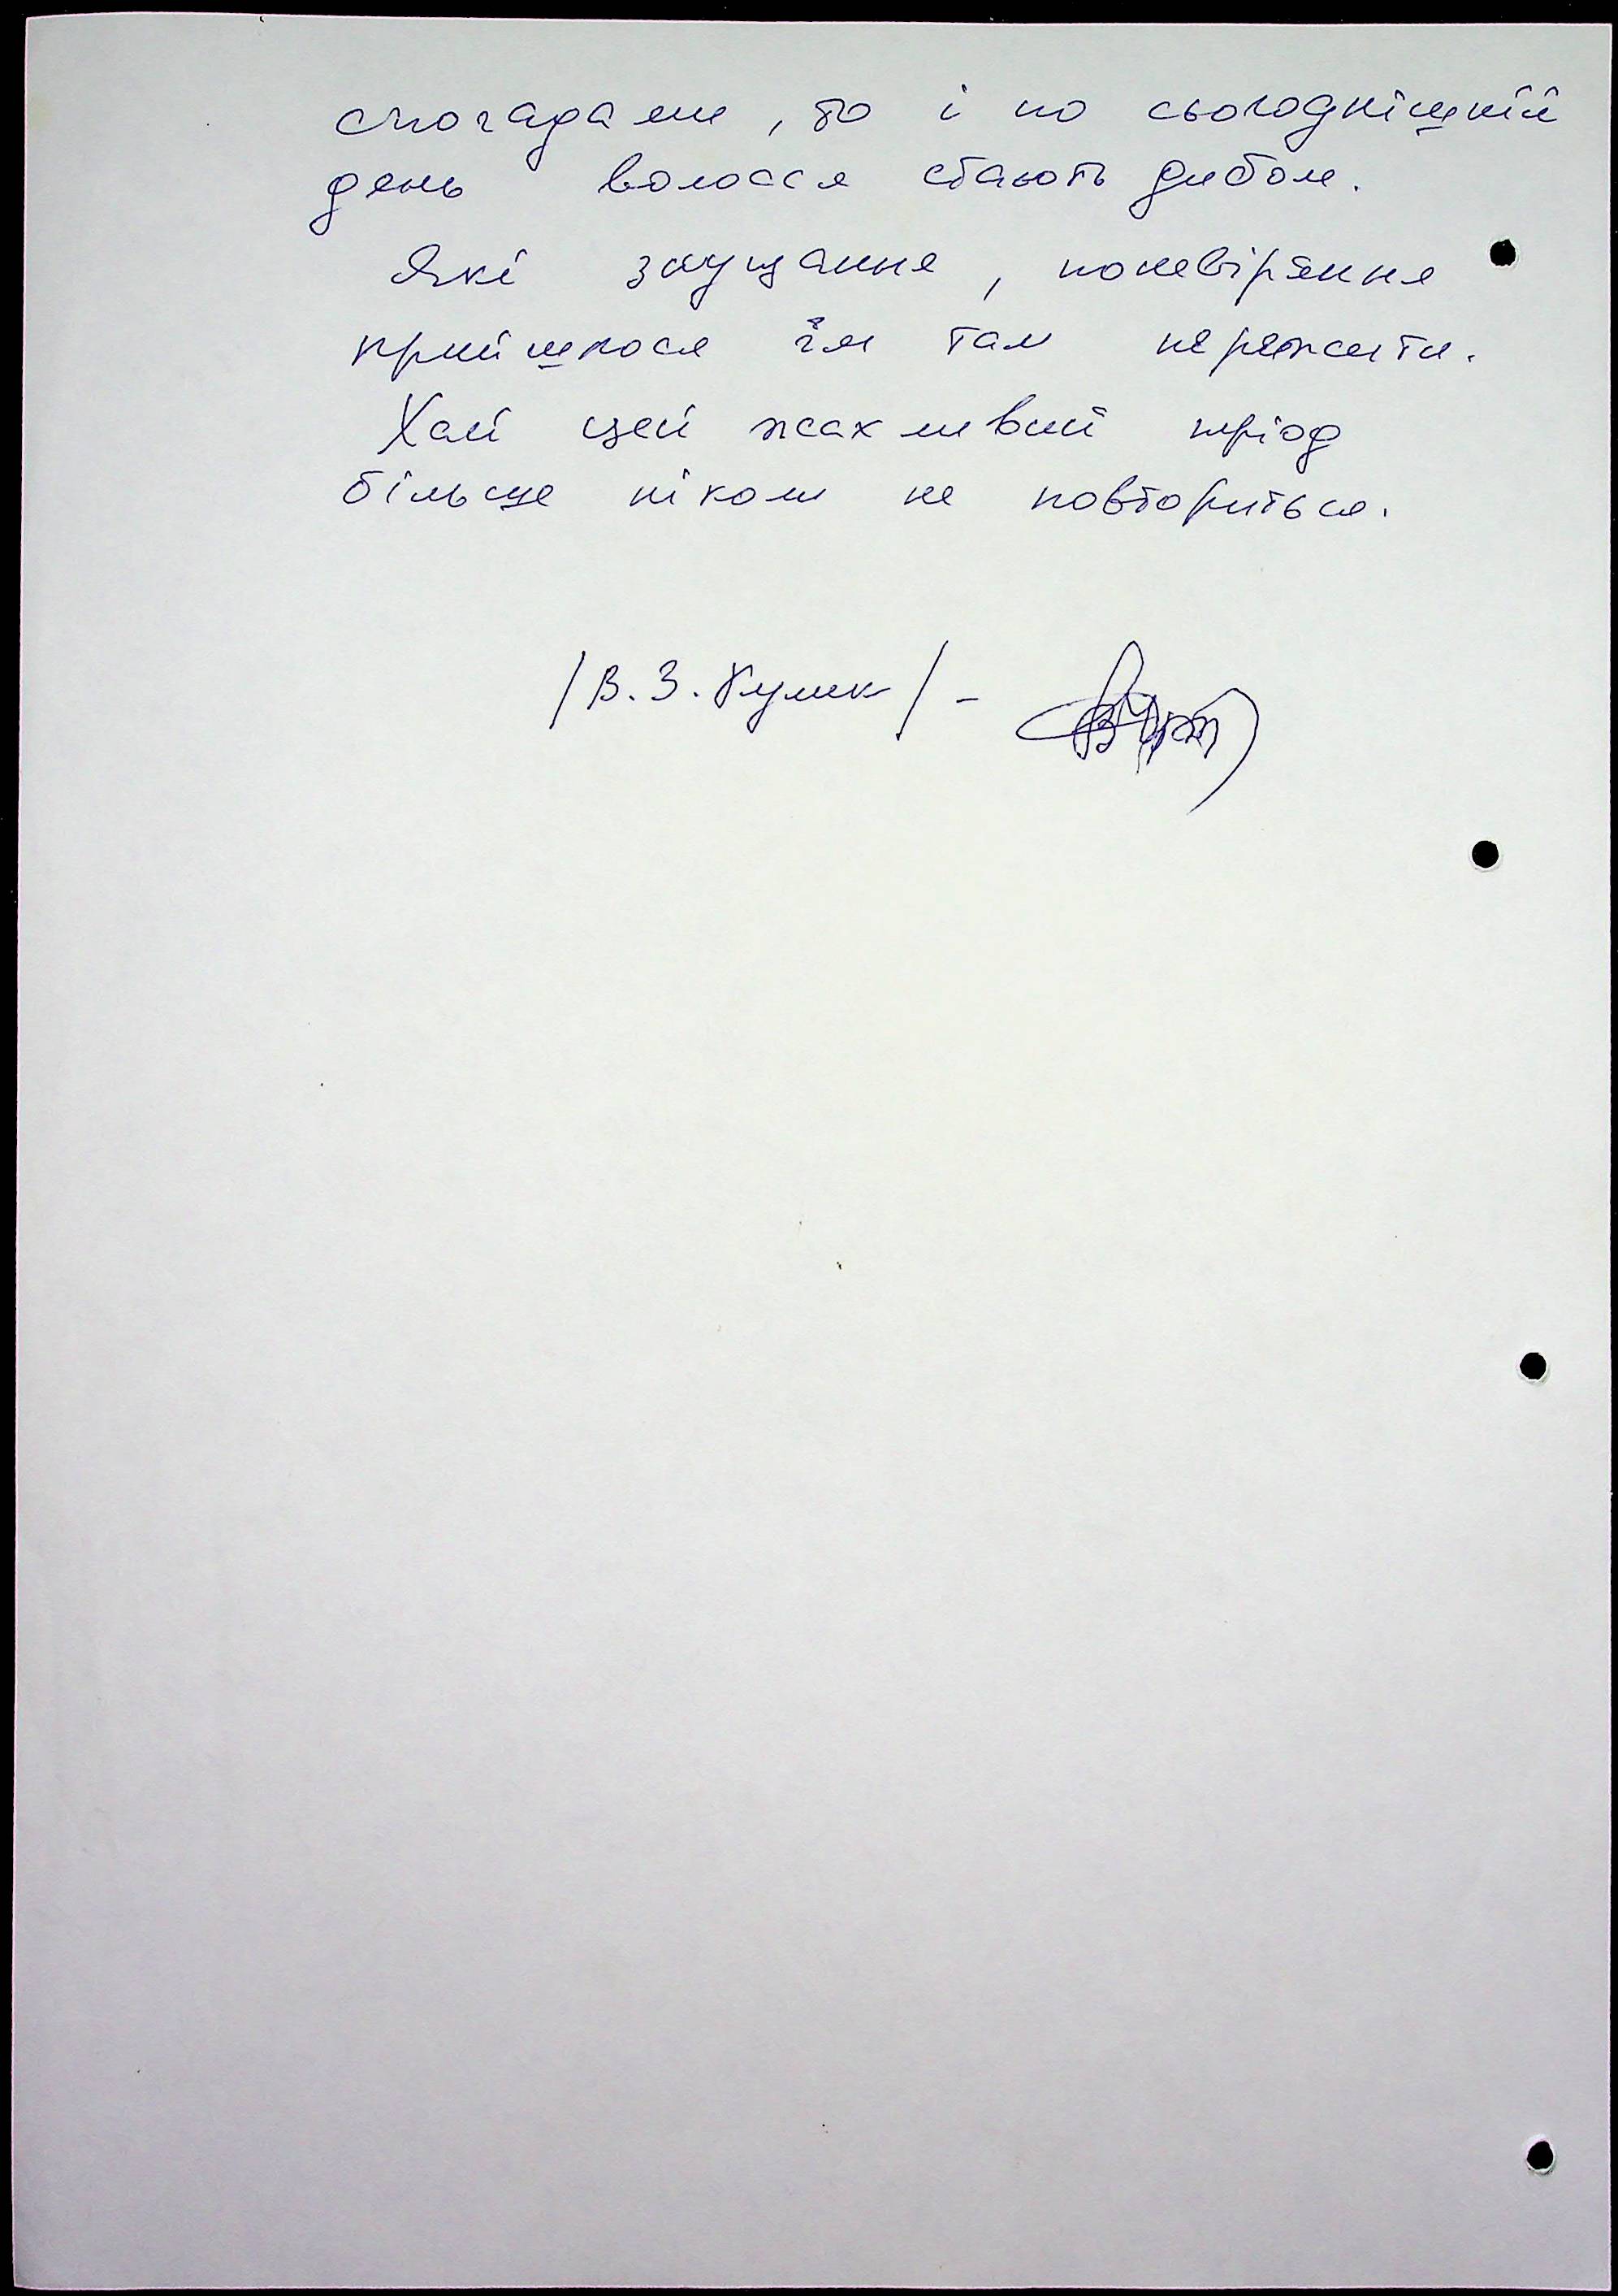 спогадами, то і по сьогоднішній
день волосся стають дибом.
Які знущання, поневіряння
прийшлося їм там пережити.
Хай цей жахливий період
більше ніколи не повториться.
/В. З. Кулик/ -